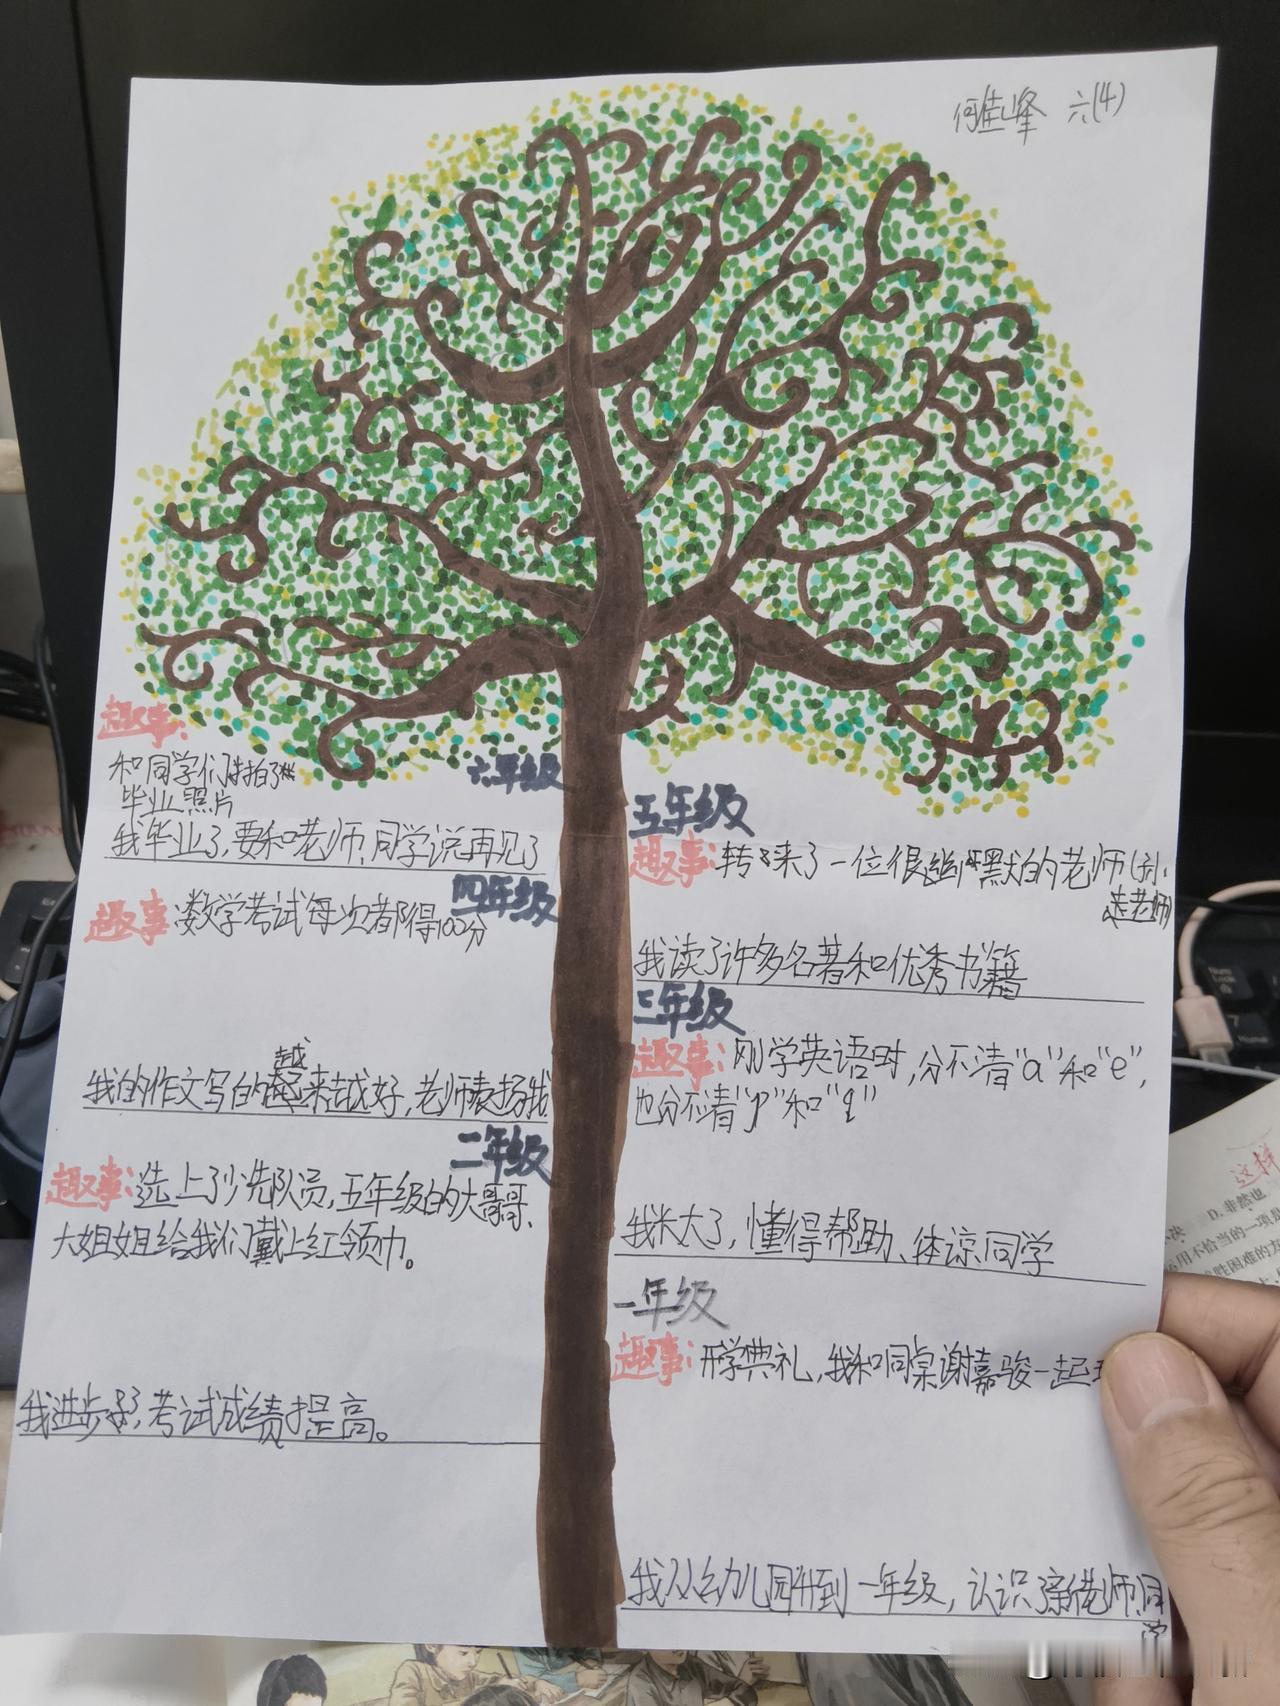 何佳峰 六(4)
趣事:
和同学们拍了
毕业照片
六年级
我毕业了,要和老师、同学说再见了
五年级
趣事:转来了一位很幽默的老师(孙
老师)
四年级
趣事:数学考试每次都得100分
我读了许多名著和优秀书籍
三年级
趣事:刚学英语时,分不清“a”和“e”,
也分不清“p”和“q”
越
我的作文写的起来越好,老师表扬我
二年级
趣事:选上了少先队员,五年级的大哥哥、
大姐姐给我们戴上红领巾。
我长大了,懂得帮助、体谅同学
一年级
趣事:开学典礼,我和同桌谢嘉骏一起
我进步了,考试成绩提高。
我从幼儿园升到一年级,认识了新老师、同
学
这样
D.非然也
运用不恰当的一项是
胜困难的方